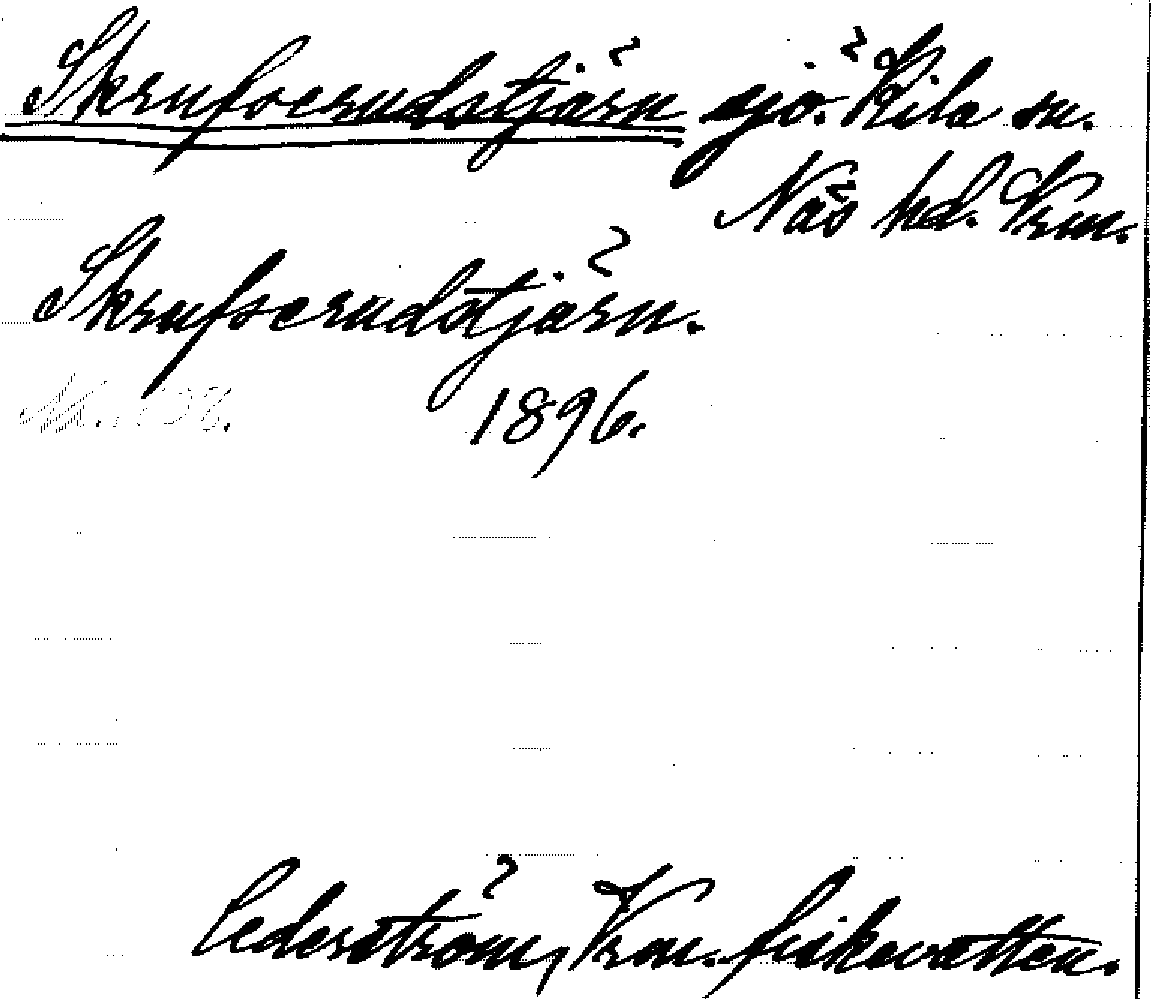 Skrufserudstjärn sjö. Kila sn.
Näs hd. Vrm.
Skrufserudstjärn.
1896.
Cederström, Vrm. fiskevatten.